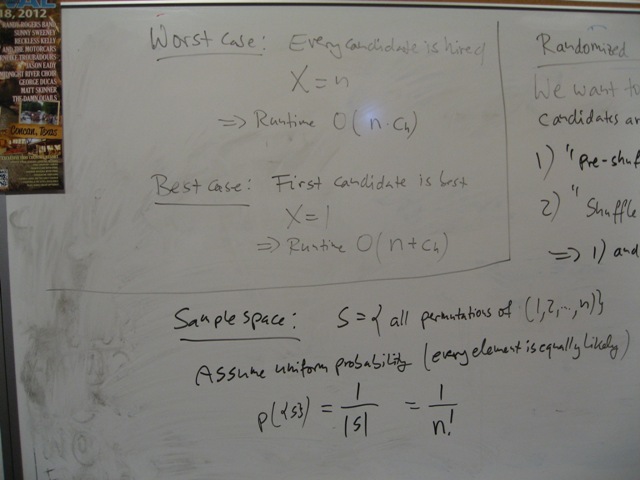 18, 2012
RANDY ROGERS BAND
SUNNY SWEENEY
RECKLESS KELLY
AND THE MOTORCARS
JASON EADY
MIDNIGHT RIVER CHOIR
GEORGE DUCAS
MATT SKINNER
THE DAMN QUAILS
Concan, Texas
Worst case: Every candidate is hired
X = n
=> Runtime O(n·ch)
Best case: First candidate is best
X = 1
=> Runtime O(n+ch)
Randomized
We want to
candidates ar
1) "pre-shuf
2) "Shuffle
=> 1) and
Sample space: S = { all permutations of (1,2,...,n)}
Assume uniform probability (every element is equally likely)
p({s}) = 1/|S| = 1/n!